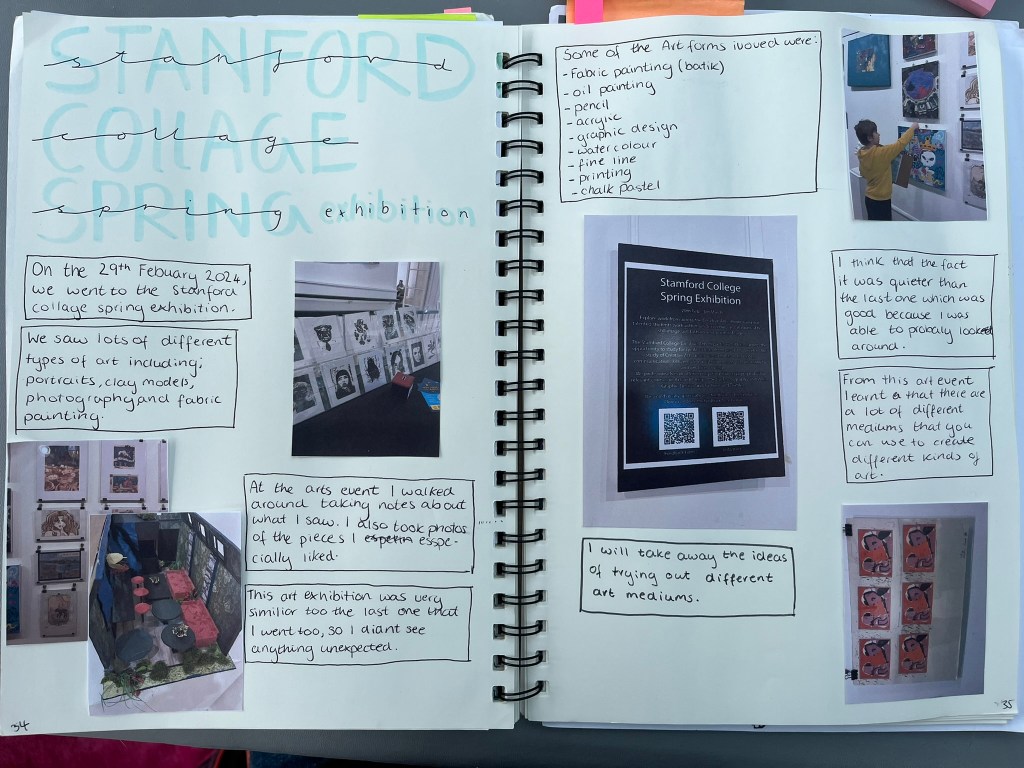 STANFORD
stanford
COllAGE
collage
SPRING exhibition
spring exhibition
On the 29th Febuary 2024,
we went to the Stanford
collage spring exhibition.
We saw lots of different
types of art including;
portraits, clay models,
photography and fabric
painting.
At the arts event I walked
around taking notes about
what I saw. I also took photos
of the pieces I espetin esspe-
cially liked.
This art exhibition was very
similior too the last one that
I went too, so I didnt see
anything unexpected.
34
Some of the Art forms ivoved were:
- Fabric painting (batik)
- oil painting
- pencil
- acrylic
- graphic design
- watercolour
- fine line
- printing
- chalk pastel
Stamford College
Spring Exhibition
I think that the fact
it was quieter than
the last one which was
good because I was
able to probaly looked
around.
From this art event
I learnt a that there are
a lot of different
mediums that you
can use to create
different kinds of
art.
I will take away the ideas
of trying out different
art mediums.
35